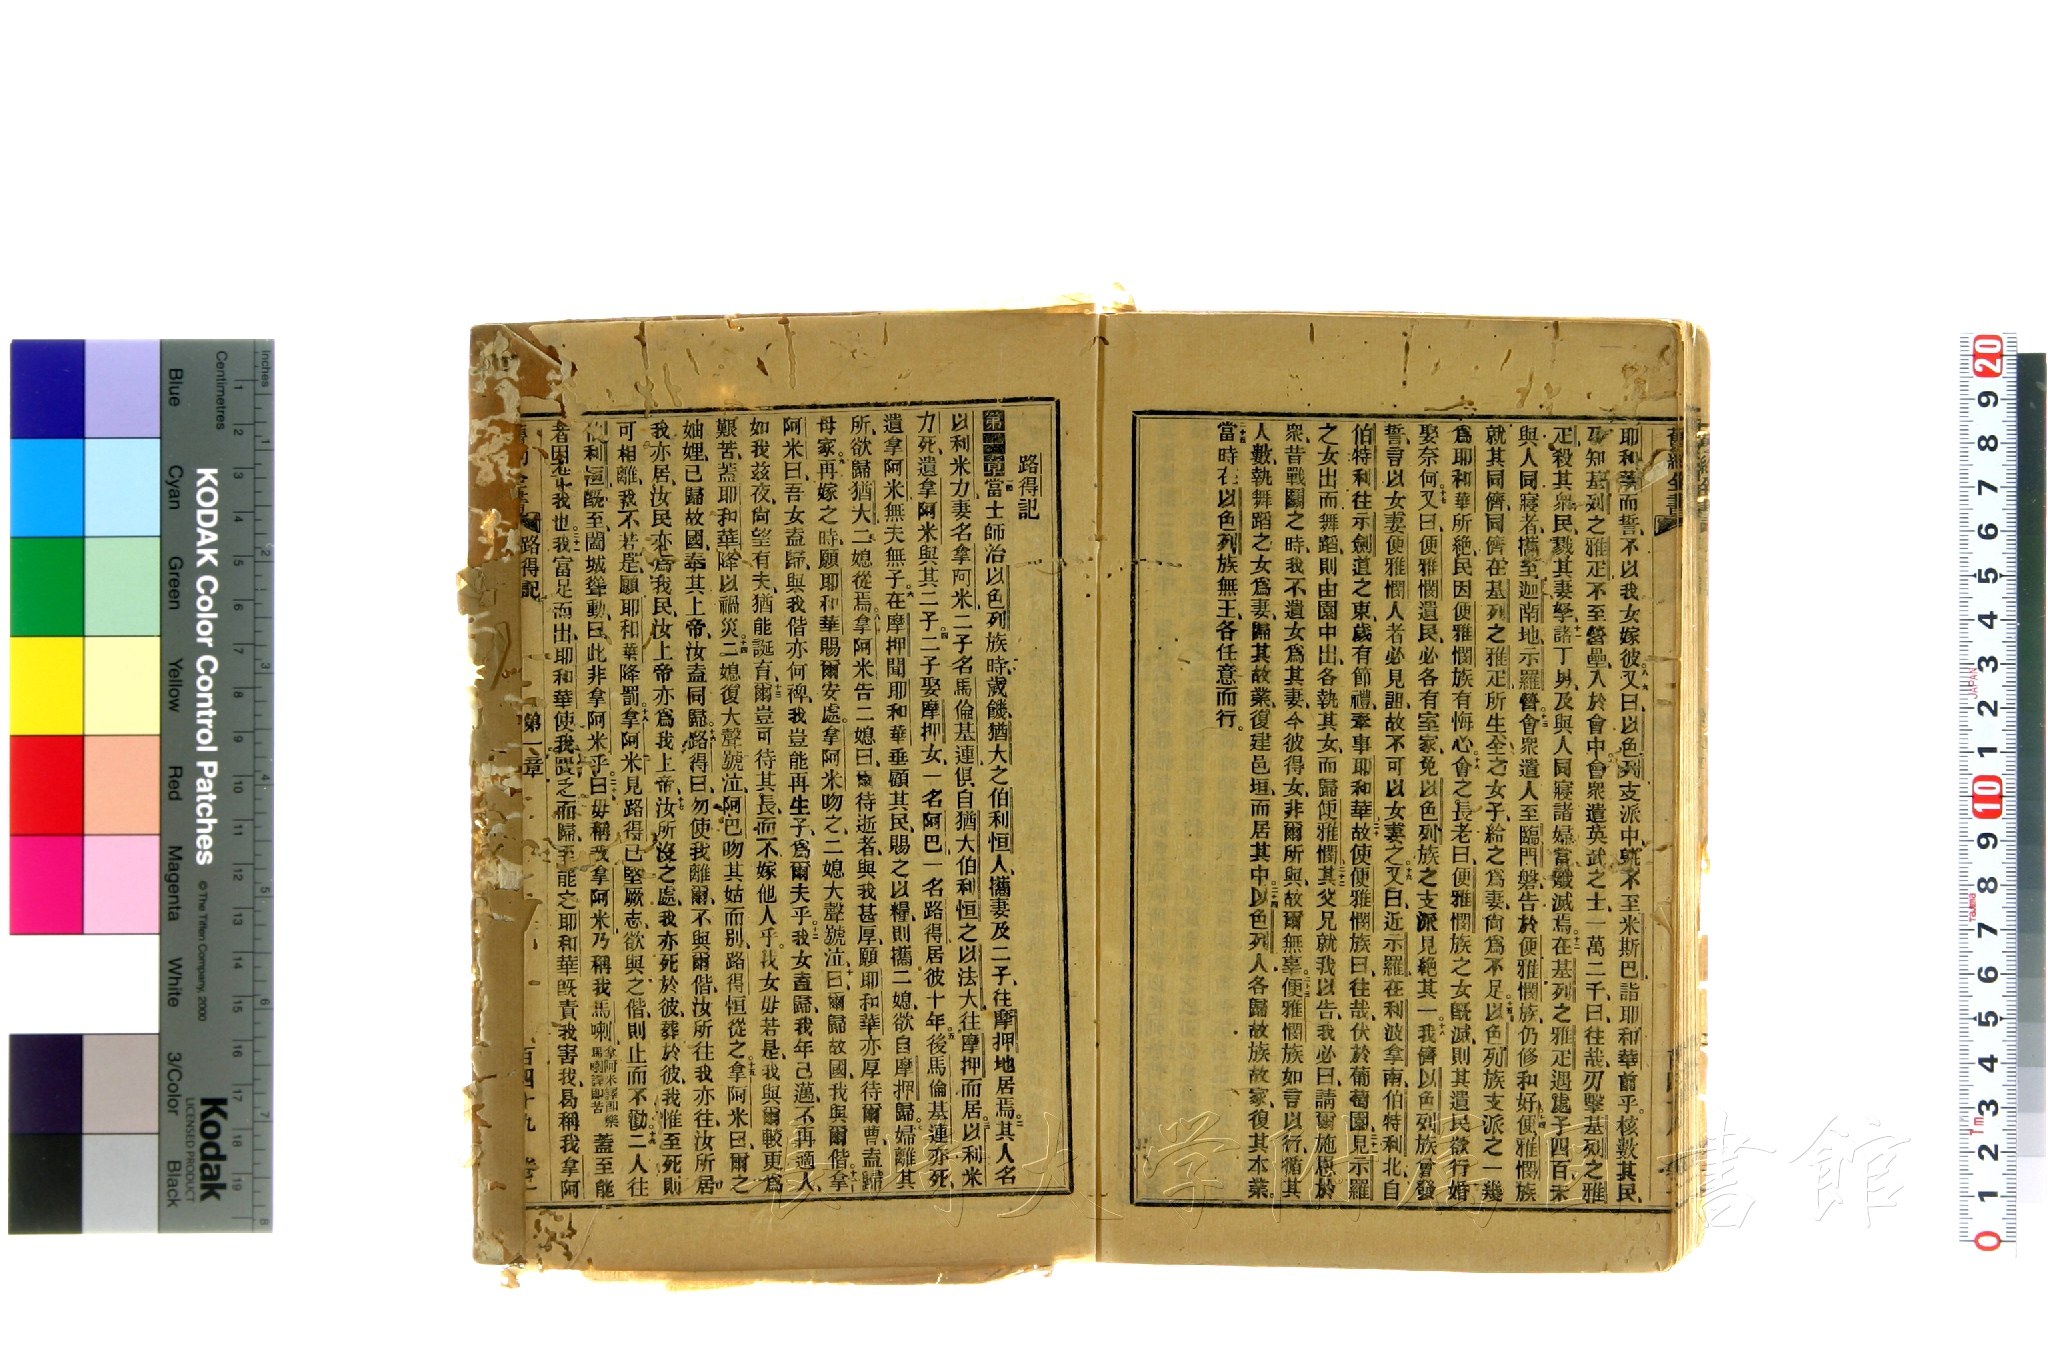 耶和華而誓不以我女嫁彼又曰以色列支派中孰不至米斯巴詣耶和華前乎核數其民
乃知基列之雅疋不至營壘入於會中會眾遣英武之士一萬二千曰往哉刃擊基列之雅
疋殺其眾民戮其妻孥諸丁男及與人同寢諸婦當殲滅焉在基列之雅疋遇處子四百未
與人同寢者攜至迦南地示羅營會眾遣人至臨門磐告於便雅憫族仍修和好便雅憫族
就其同儕同儕在基列之雅疋所生全之女子給之為妻尚為不足以色列族支派之一幾
為耶和華所絕民因便雅憫族有悔心會之長老曰便雅憫族之女既滅則其遺民欲行婚
娶奈何又曰便雅憫遺民必各有室家免以色列族之支派見絕其一我儕以色列族會發
誓言以女妻便雅憫人者必見詛故不可以女妻之又曰近示羅在利波拿南伯特利北自
伯特利往示劍道之東歲有節禮奉事耶和華故使便雅憫族曰往哉伏於葡萄園見示羅
之女出而舞蹈則由園中出各執其女而歸便雅憫其父兄就我以告我必曰請爾施恩於
眾昔戰鬭之時我不遺女為其妻今彼得女非爾所與故爾無辜便雅憫族如言以行循其
人數執舞蹈之女為妻歸其故業復建邑垣而居其中以色列人各歸故族故家復其本業
當時在以色列族無王各任意而行
路得記
第一章當士師治以色列族時歲饑猶大之伯利恒人攜妻及二子往摩押地居焉其人名
以利米力妻名拿阿米二子名馬倫基連俱自猶大伯利恒之以法大往摩押而居以利米
力死遺拿阿米與其二子二子娶摩押女一名阿巴一名路得居彼十年後馬倫基連亦死
遺拿阿米無夫無子在摩押聞耶和華垂顧其民賜之以糧則攜二媳欲自摩押歸婦離其
所欲歸猶大二媳從焉拿阿米告二媳曰爾待逝者與我甚厚願耶和華亦厚待爾曹盍歸
母家再嫁之時願耶和華賜爾安處拿阿米吻之二媳大聲號泣曰爾歸故國我與爾偕拿
阿米曰吾女盍歸與我偕亦何裨我豈能再生子為爾夫乎我女盍歸我年已邁不再適人
如我茲夜尚望有夫猶能誕育爾豈可待其長而不嫁他人乎我女毋若是我與爾較更為
艱苦蓋耶和華降以禍災二媳復大聲號泣阿巴吻其姑而別路得恒從之拿阿米曰爾之
妯娌已歸故國奉其上帝汝盍同歸路得曰勿使我離爾不與爾偕汝所往我亦往汝所居
我亦居汝民亦為我民汝上帝亦為我上帝汝所沒之處我亦死於彼葬於彼我惟至死則
可相離我不若是願耶和華降罰拿阿米見路得已堅厥志欲與之偕則止而不勸二人往
伯利恒既至闔城聳動曰此非拿阿米乎曰毋稱我拿阿米乃稱我馬喇拿阿米譯即樂馬喇譯即苦蓋至能
者困苦我也我富足而出耶和華使我匱乏而歸至能之耶和華既責我害我曷稱我拿阿
路得記 第一章 百四十九
KODAK Color Control Patches
© The Tiffen Company, 2000
Kodak
LICENSED PRODUCT
Inches
Centimetres
Blue
Cyan
Green
Yellow
Red
Magenta
White
3/Color
Black